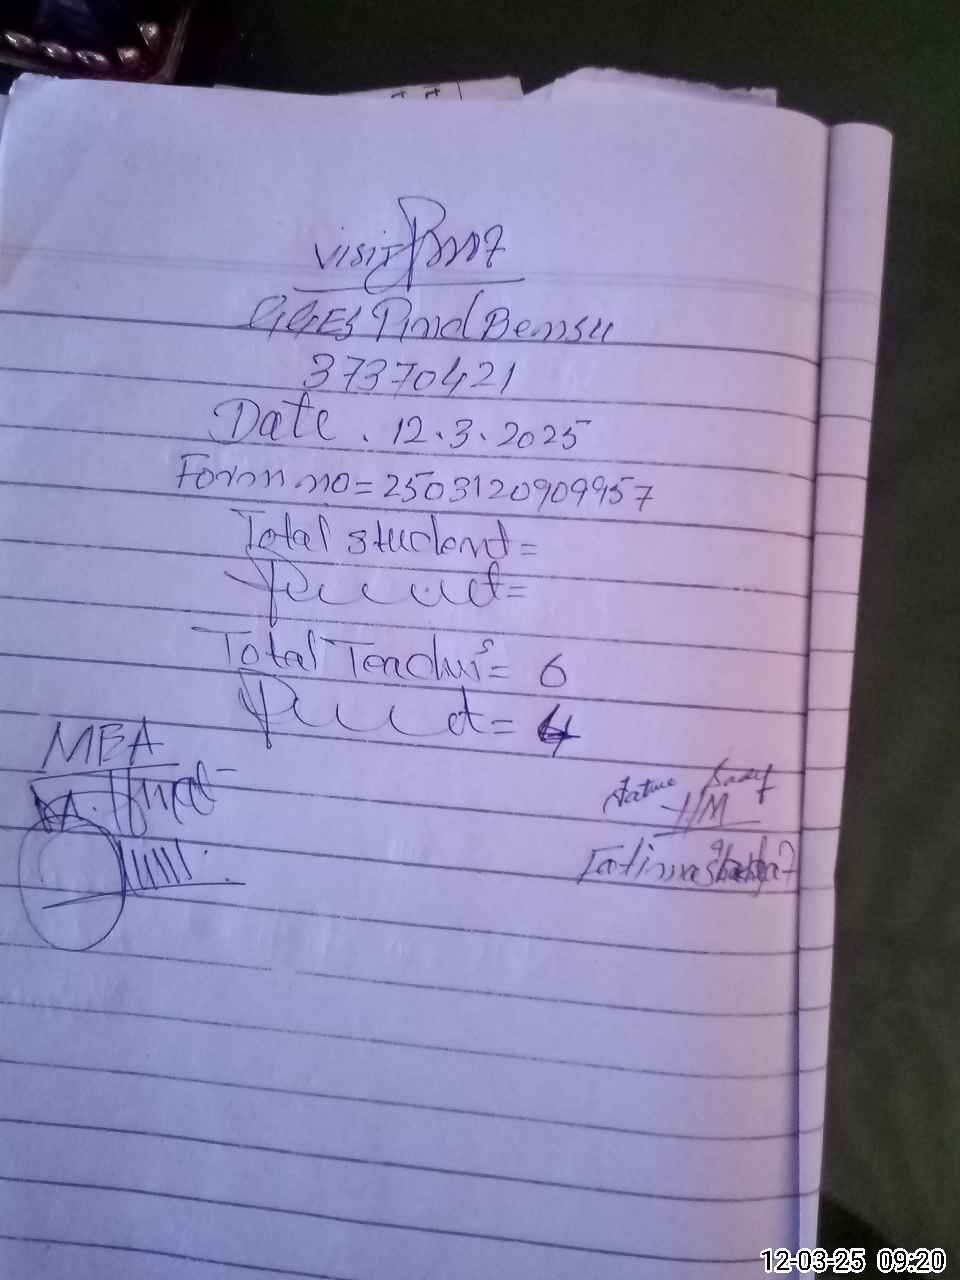 Visit
GGES Pind Bensu
37370421
Date . 12.3.2025
Form no = 2503120909957
Total student =
Present =
Total Teachers = 6
Present = 4
MEA
HM
Fatima
12-03-25 09:20